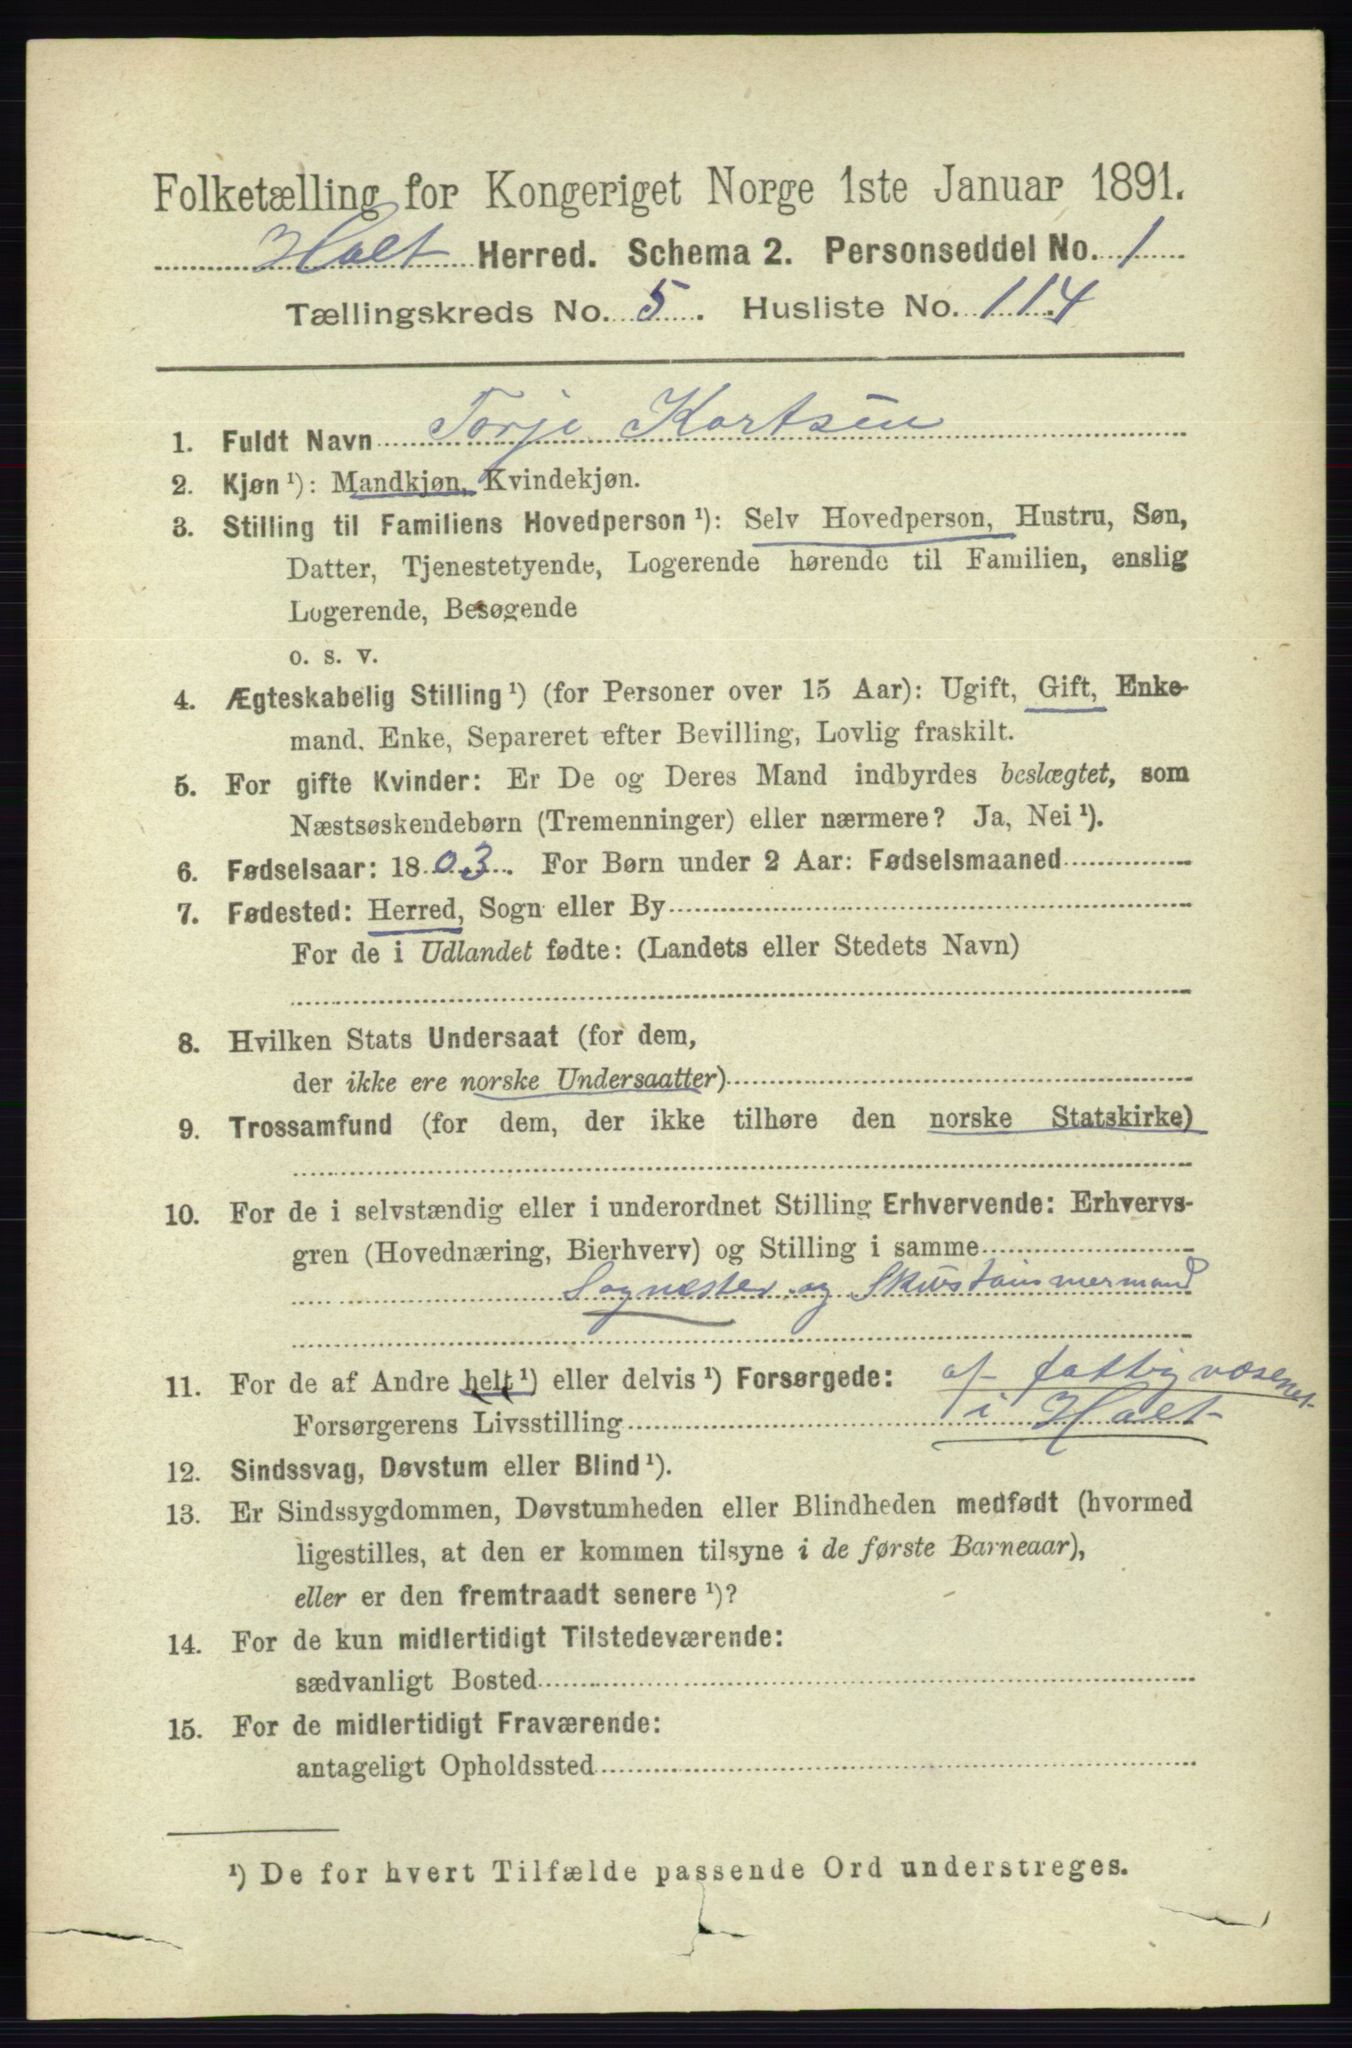 Folketælling for Kongeriget Norge 1ste Januar 1891.
Holt Herred. Schema 2. Personseddel No. 1
Tællingskreds No. 5. Husliste No. 114
1. Fuldt Navn Torje Kortsen
2. Kjøn ¹): Mandkjøn, Kvindekjøn.
3. Stilling til Familiens Hovedperson ¹): Selv Hovedperson, Hustru, Søn,
Datter, Tjenestetyende, Logerende hørende til Familien, enslig
Logerende, Besøgende
o. s. v.
4. Ægteskabelig Stilling ¹) (for Personer over 15 Aar): Ugift, Gift, Enke-
mand, Enke, Separeret efter Bevilling, Lovlig fraskilt.
5. For gifte Kvinder: Er De og Deres Mand indbyrdes beslægtet, som
Næstsøskendebørn (Tremenninger) eller nærmere? Ja, Nei ¹).
6. Fødselsaar: 1803. For Børn under 2 Aar: Fødselsmaaned
7. Fødested: Herred, Sogn eller By
For de i Udlandet fødte: (Landets eller Stedets Navn)
8. Hvilken Stats Undersaat (for dem,
der ikke ere norske Undersaatter)
9. Trossamfund (for dem, der ikke tilhøre den norske Statskirke)
10. For de i selvstændig eller i underordnet Stilling Erhvervende: Erhvervs-
gren (Hovednæring, Bierhverv) og Stilling i samme
og
11. For de af Andre helt ¹) eller delvis ¹) Forsørgede: af fattigvæsenet
Forsørgerens Livsstilling i Holt
12. Sindssvag, Døvstum eller Blind ¹).
13. Er Sindssygdommen, Døvstumheden eller Blindheden medfødt (hvormed
ligestilles, at den er kommen tilsyne i de første Barneaar),
eller er den fremtraadt senere ¹)?
14. For de kun midlertidigt Tilstedeværende:
sædvanligt Bosted
15. For de midlertidigt Fraværende:
antageligt Opholdssted
¹) De for hvert Tilfælde passende Ord understreges.